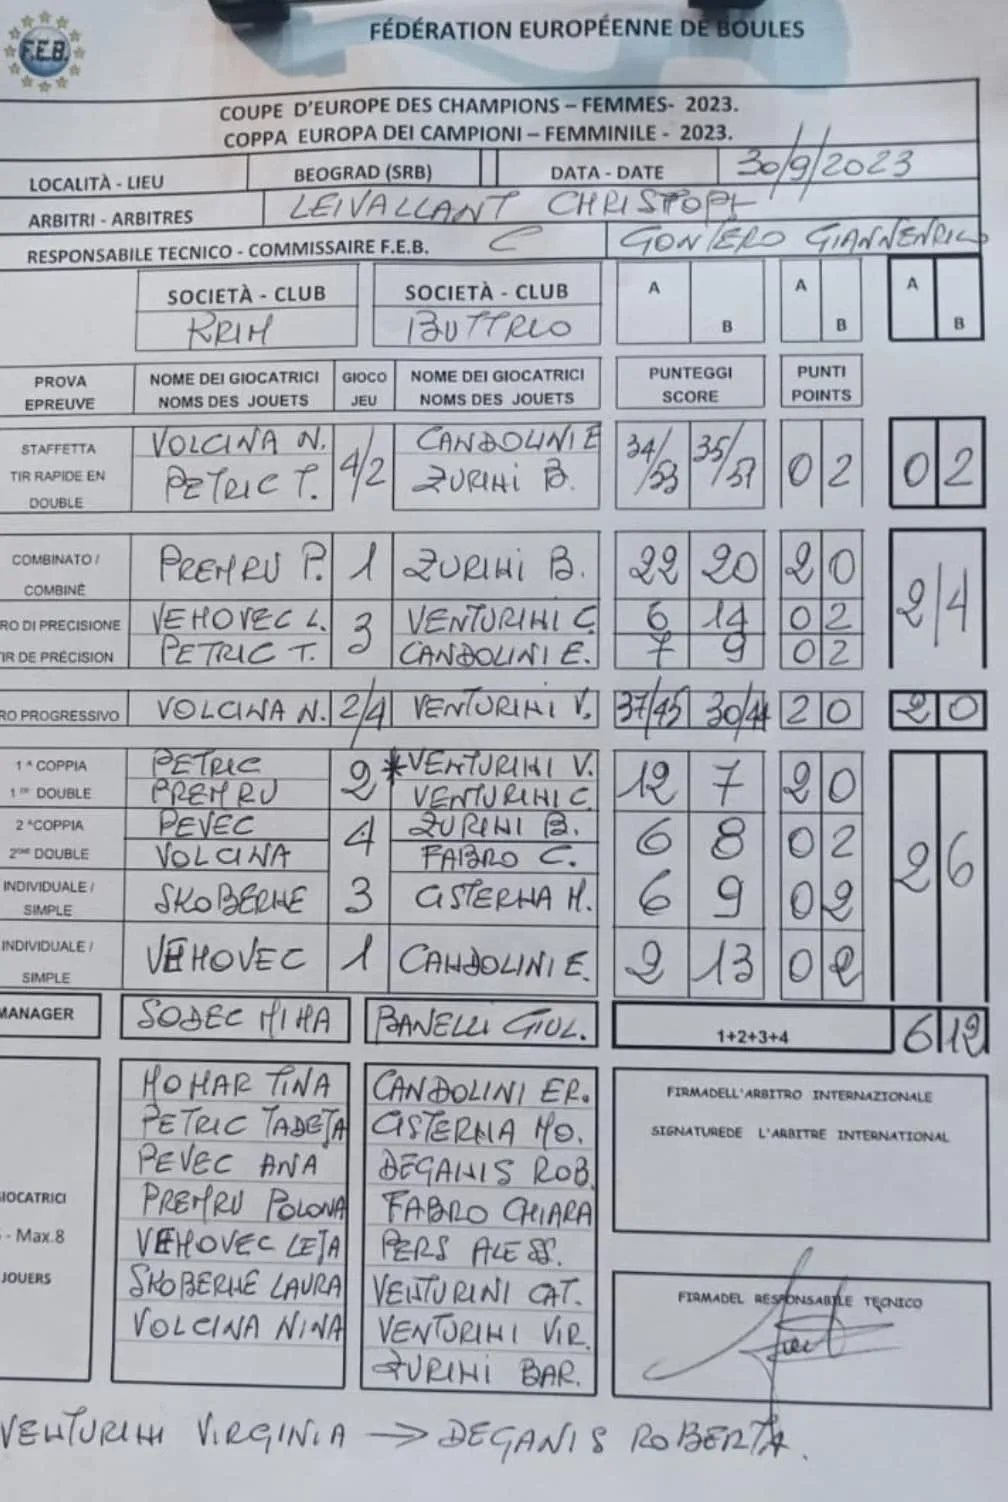 F.E.B.
FÉDÉRATION EUROPÉENNE DE BOULES
COUPE D'EUROPE DES CHAMPIONS – FEMMES- 2023.
COPPA EUROPA DEI CAMPIONI – FEMMINILE - 2023.
LOCALITÀ - LIEU BEOGRAD (SRB) DATA - DATE 30/9/2023
ARBITRI - ARBITRES LEIVALLANT CHRISTOPH
RESPONSABILE TECNICO - COMMISSAIRE F.E.B. GONTERO GIANNENRICO
SOCIETÀ - CLUB SOCIETÀ - CLUB A B A B A B
KRIM BUTTRIO
PROVA NOME DEI GIOCATRICI GIOCO NOME DEI GIOCATRICI PUNTEGGI PUNTI
EPREUVE NOMS DES JOUETS JEU NOMS DES JOUETS SCORE POINTS
STAFFETTA VOLCINA N. 4/2 CANDOLINI E 34/53 35/51 0 2 0 2
TIR RAPIDE EN PETRIC T. ZURINI B.
DOUBLE
COMBINATO / PREMRU P. 1 ZURINI B. 22 20 2 0 2/4
COMBINÉ
RO DI PRECISIONE VEHOVEC L. 3 VENTURINI C 6 14 0 2
IR DE PRÉCISION PETRIC T. CANDOLINI E. 7 9 0 2
RO PROGRESSIVO VOLCINA N. 2/4 VENTURINI V. 37/45 30/44 2 0 2 0
1 ^ COPPIA PETRIC 2 *VENTURINI V. 12 7 2 0 2 6
1 ER DOUBLE PREMRU VENTURINI C.
2 ^COPPIA PEVEC 4 ZURINI B. 6 8 0 2
2EME DOUBLE VOLCINA FABRO C.
INDIVIDUALE / SKOBERNE 3 CISTERNA M. 6 9 0 2
SIMPLE
INDIVIDUALE / VEHOVEC 1 CANDOLINI E. 2 13 0 2
SIMPLE
MANAGER SODEC MIHA BANELLI GIUL. 1+2+3+4 6 12
MOHAR TINA CANDOLINI ER. FIRMADELL'ARBITRO INTERNAZIONALE
PETRIC TADEJA CISTERNA MO. SIGNATUREDE L'ARBITRE INTERNATIONAL
PEVEC ANA DEGANIS ROB.
IOCATRICI PREMRU POLONA FABRO CHIARA
- Max.8 VEHOVEC LEJA PERS ALESS.
JOUERS SKOBERNE LAURA VENTURINI CAT. FIRMADEL RESPONSABILE TECNICO
VOLCINA NINA VENTURINI VIR.
ZURINI BAR.
VENTURINI VIRGINIA → DEGANIS ROBERTA.